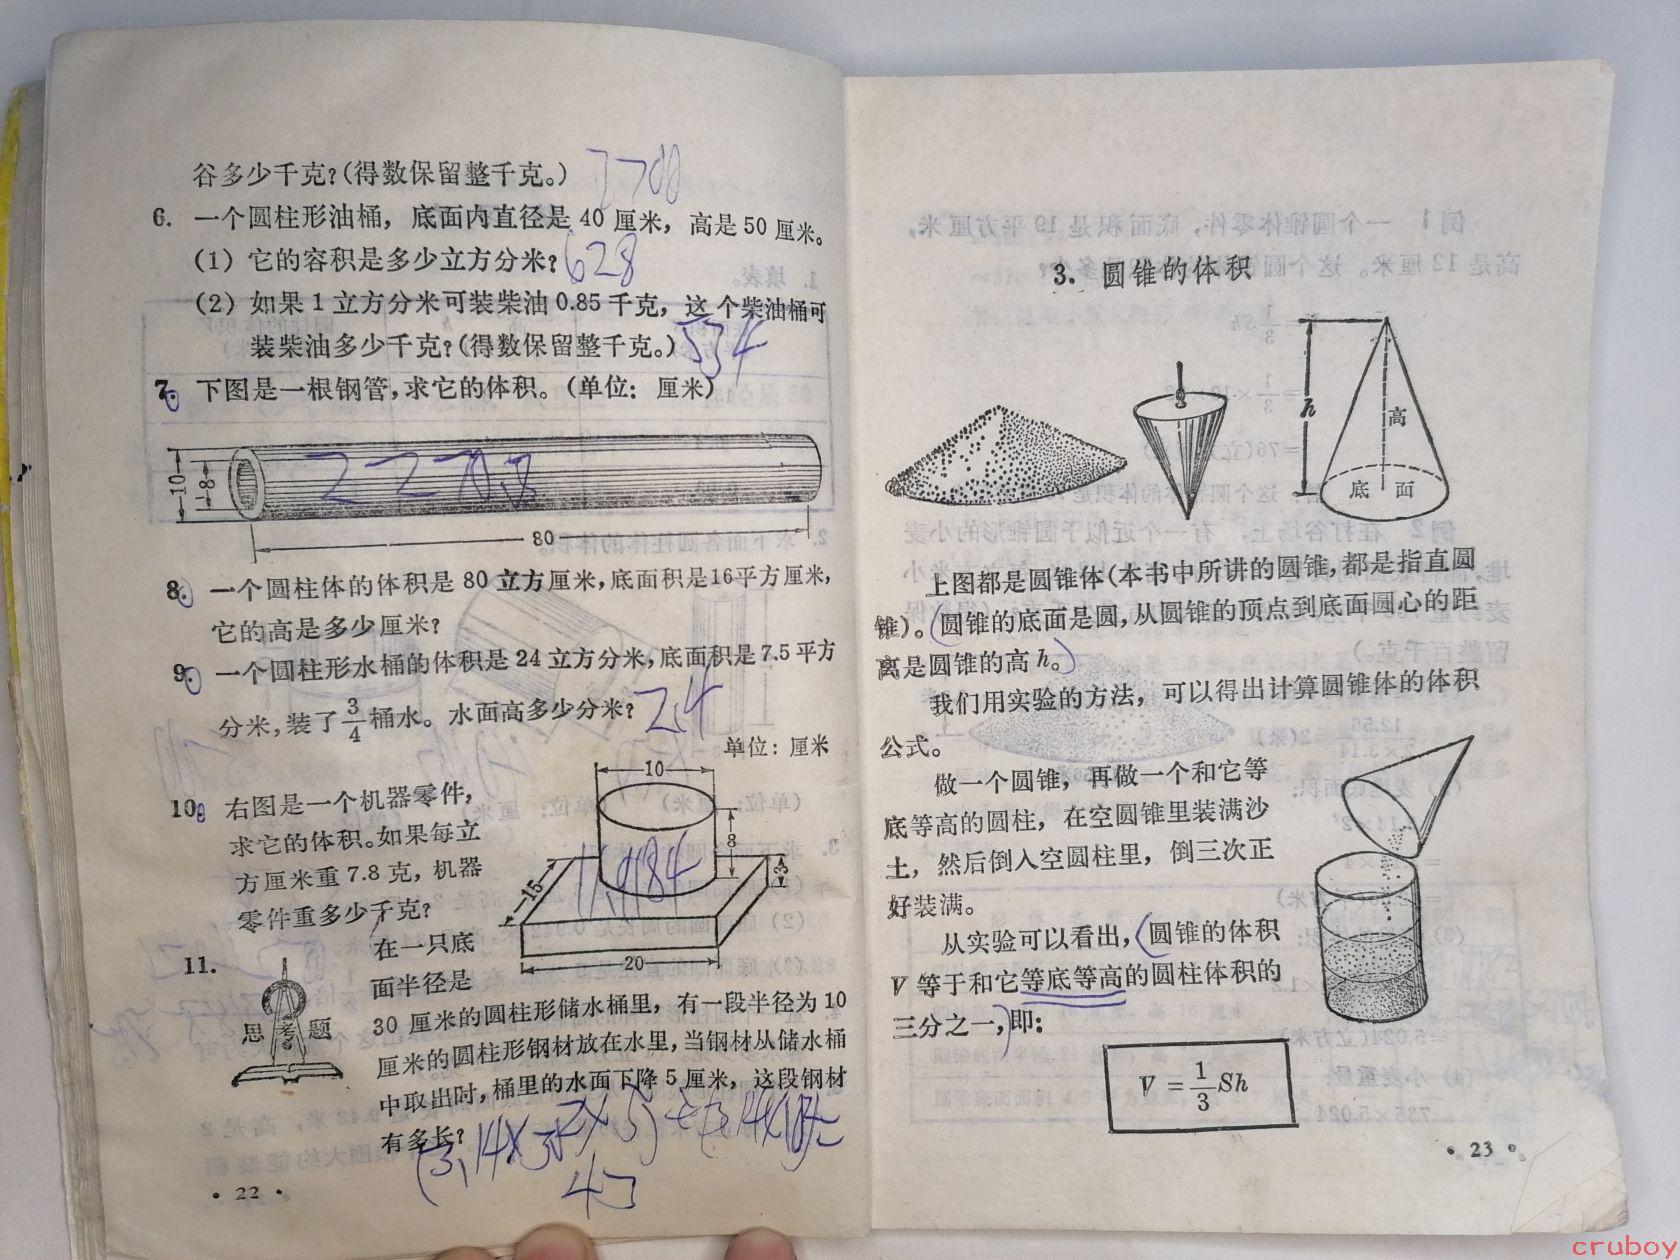 谷多少千克?(得数保留整千克。)
6. 一个圆柱形油桶，底面内直径是 40 厘米，高是 50 厘米。
(1) 它的容积是多少立方分米? 628
(2) 如果 1 立方分米可装柴油 0.85 千克，这个柴油桶可
装柴油多少千克?(得数保留整千克。) 534
7. 下图是一根钢管，求它的体积。(单位：厘米)
10
8
80
8. 一个圆柱体的体积是 80 立方厘米，底面积是16平方厘米，
它的高是多少厘米?
9. 一个圆柱形水桶的体积是 24 立方分米，底面积是 7.5 平方
分米，装了 3/4 桶水。水面高多少分米? 2.4
单位：厘米
10. 右图是一个机器零件，
求它的体积。如果每立
方厘米重 7.8 克，机器
零件重多少千克?
10
8
15
3
20
11. 在一只底
面半径是
思考题
30 厘米的圆柱形储水桶里，有一段半径为 10
厘米的圆柱形钢材放在水里，当钢材从储水桶
中取出时，桶里的水面下降 5 厘米，这段钢材
有多长?
45
• 22 •
3. 圆锥的体积
h
高
底面
上图都是圆锥体(本书中所讲的圆锥，都是指直圆
锥)。圆锥的底面是圆，从圆锥的顶点到底面圆心的距
离是圆锥的高 h。
我们用实验的方法，可以得出计算圆锥体的体积
公式。
做一个圆锥，再做一个和它等
底等高的圆柱，在空圆锥里装满沙
土，然后倒入空圆柱里，倒三次正
好装满。
从实验可以看出，圆锥的体积
V 等于和它等底等高的圆柱体积的
三分之一，即：
V = 1/3 Sh
• 23 •
cruboy